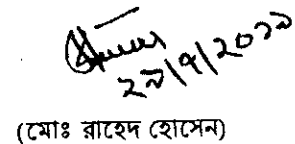 ২৯/৭/২০১৯
(মোঃ রাহেদ হোসেন)